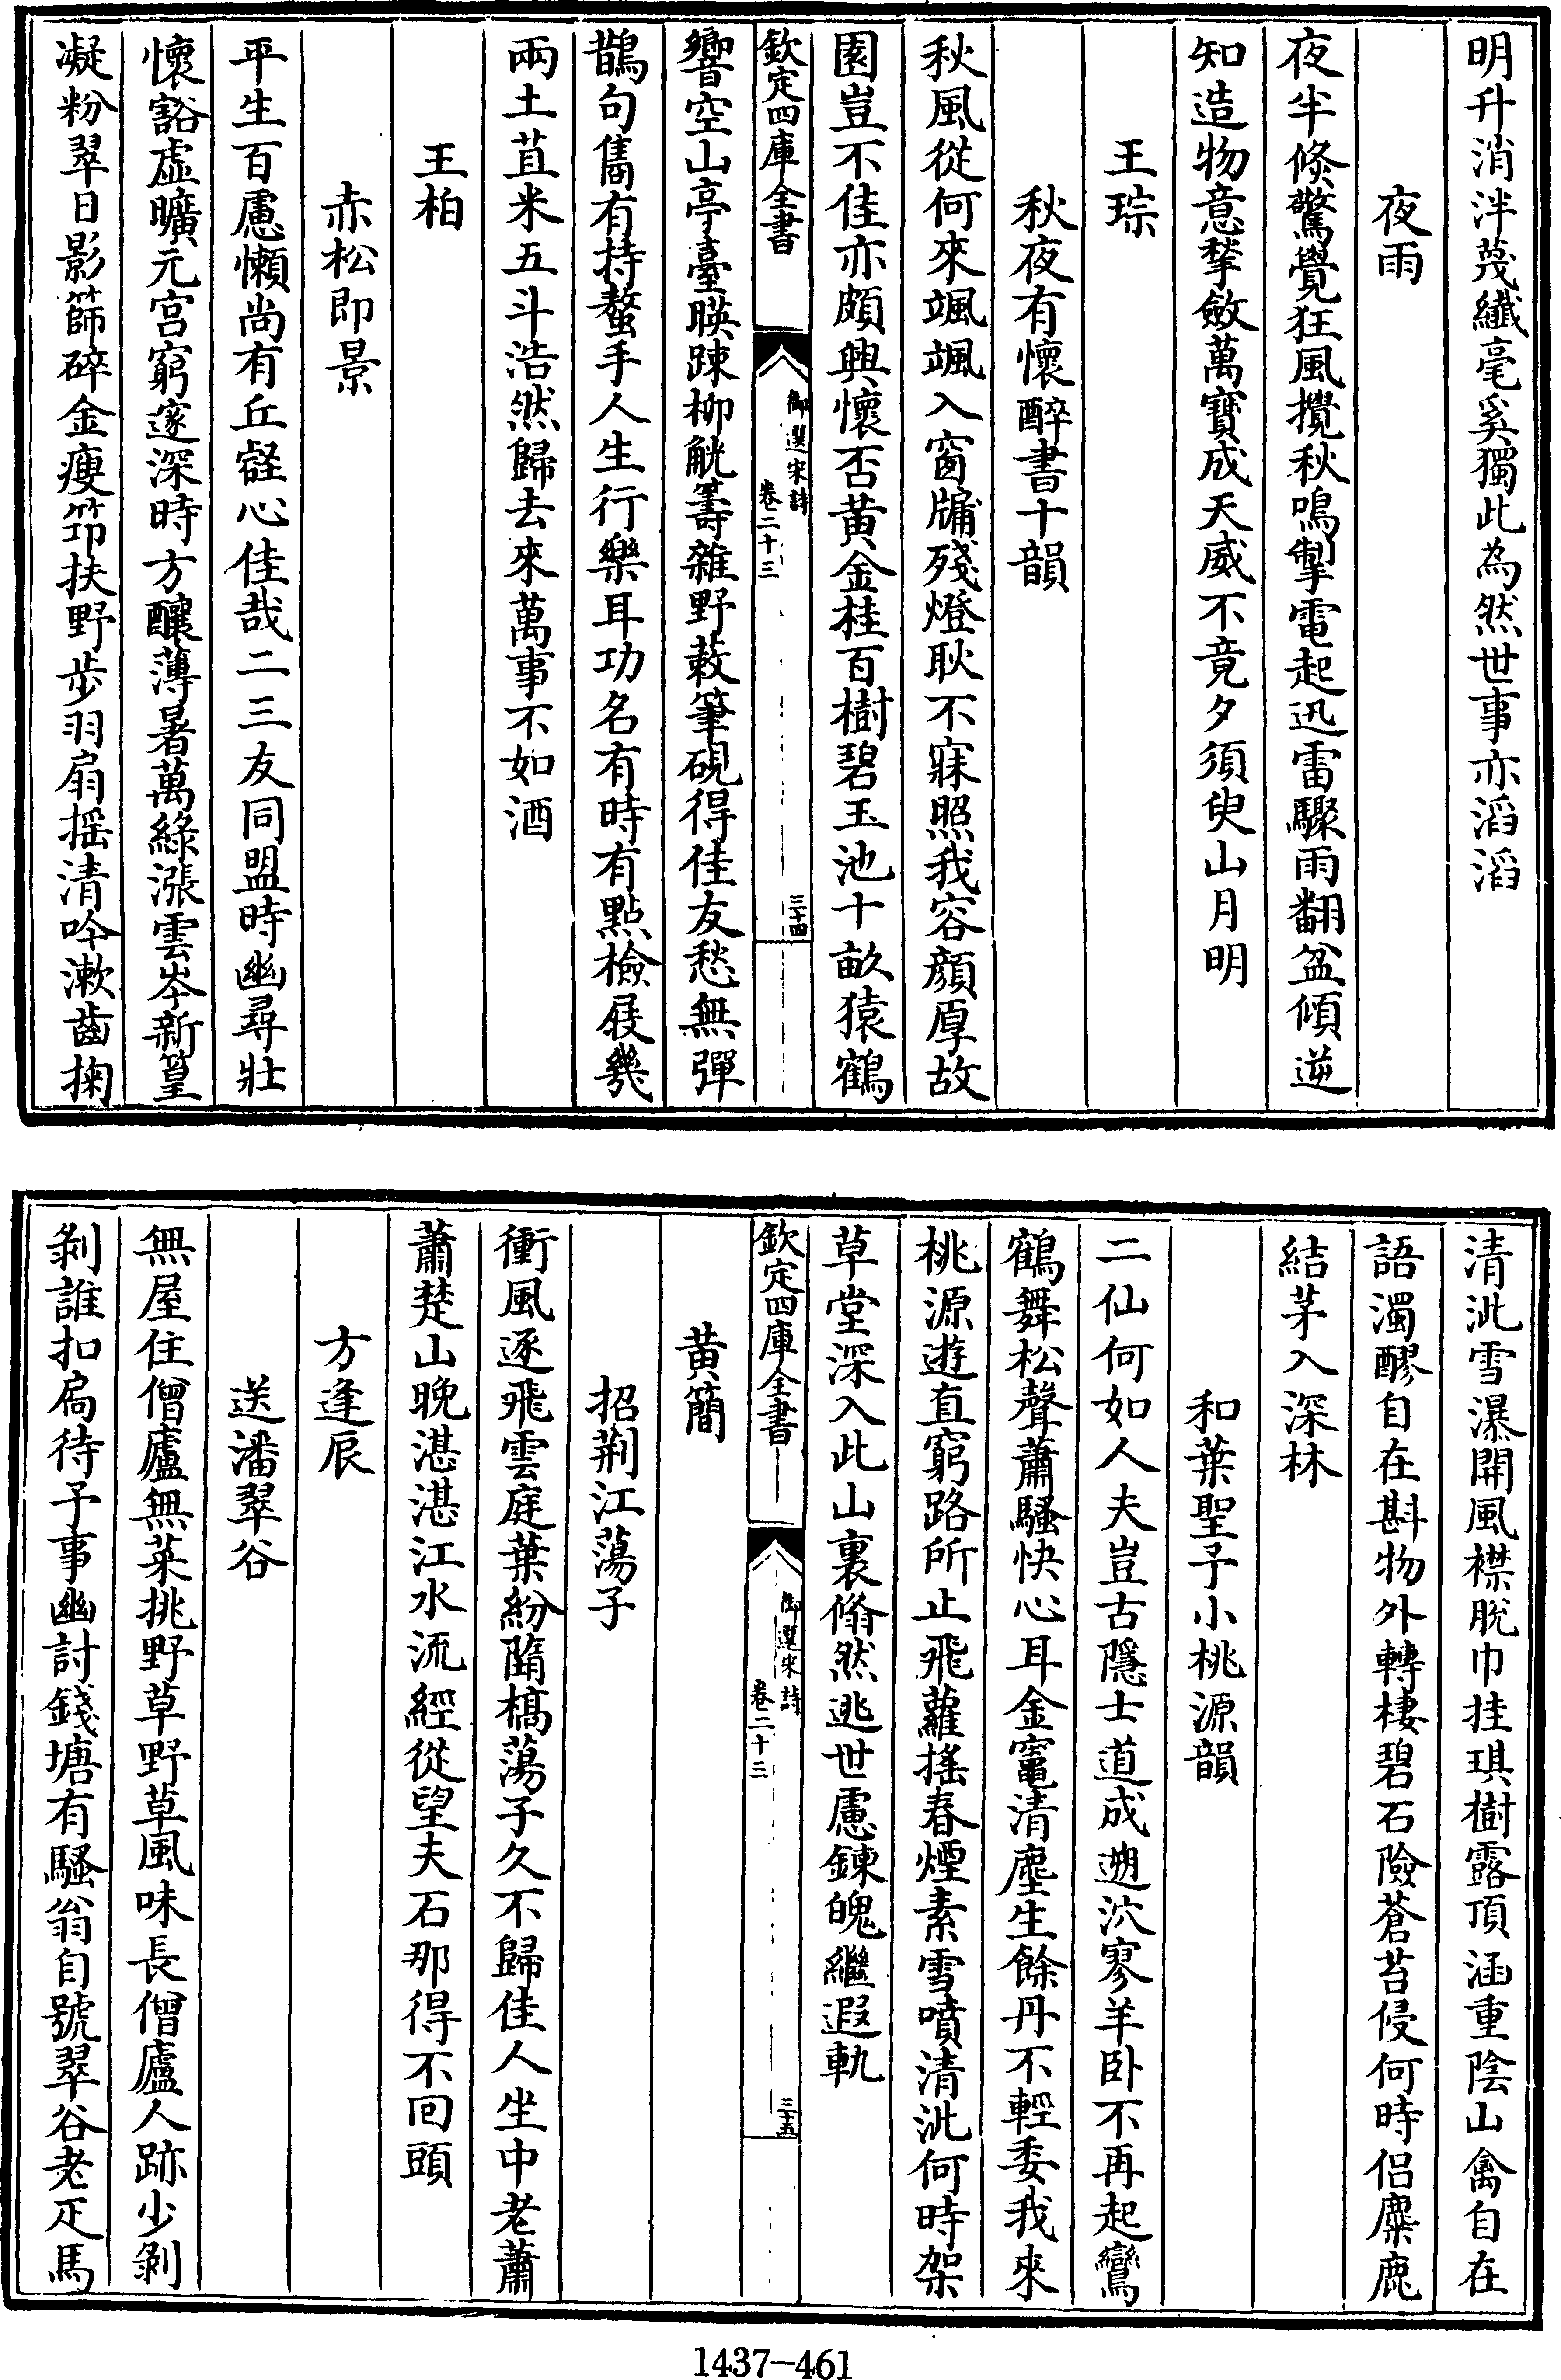 明升消泮蔑纖毫奚獨此為然世事亦滔滔
夜雨
夜半倐驚覺狂風攪秋鳴掣電起迅雷驟雨翻盆傾逆
知造物意揫斂萬寶成天威不竟夕須臾山月明
王琮
秋夜有懷醉書十韻
秋風從何來颯颯入窗牖殘燈耿不寐照我容顏厚故
園豈不佳亦頗興懷否黄金桂百樹碧玉池十畝猿鶴
欽定四庫全書
御選宋詩
卷二十三
三十四
響空山亭臺暎踈栁觥籌雜野蔌筆硯得佳友愁無彈
鵲句雋有持螯手人生行樂耳功名有時有點檢屐幾
兩土苴米五斗浩然歸去來萬事不如酒
王柏
赤松即景
平生百慮懶尚有丘壑心佳哉二三友同盟時幽尋壯
懷豁虚曠元宫窮邃深時方釀薄暑萬綠漲雲岑新篁
凝粉翠日影篩碎金瘦笻扶野步羽扇揺清吟漱齒掬
清泚雪瀑開風襟脫巾挂琪樹露頂涵重陰山禽自在
語濁醪自在斟物外轉棲碧石險蒼苔侵何時侣麋鹿
結茅入深林
和葉聖予小桃源韻
二仙何如人夫豈古隱士道成遡泬寥羊卧不再起鸞
鶴舞松聲蕭騷快心耳金竈清塵生餘丹不輕委我來
桃源遊直窮路所止飛蘿揺春煙素雪噴清泚何時架
草堂深入此山裏翛然逃世慮鍊魄繼遐軌
欽定四庫全書
御選宋詩
卷二十三
三十五
黄簡
招荆江蕩子
衝風逐飛雲庭葉紛隋槁蕩子久不歸佳人坐中老蕭
蕭楚山晚湛湛江水流經從望夫石那得不回頭
方逢辰
送潘翠谷
無屋住僧廬無菜挑野草野草風味長僧廬人跡少剝
剝誰扣扃待予事幽討錢塘有騷翁自號翠谷老疋馬
1437-461